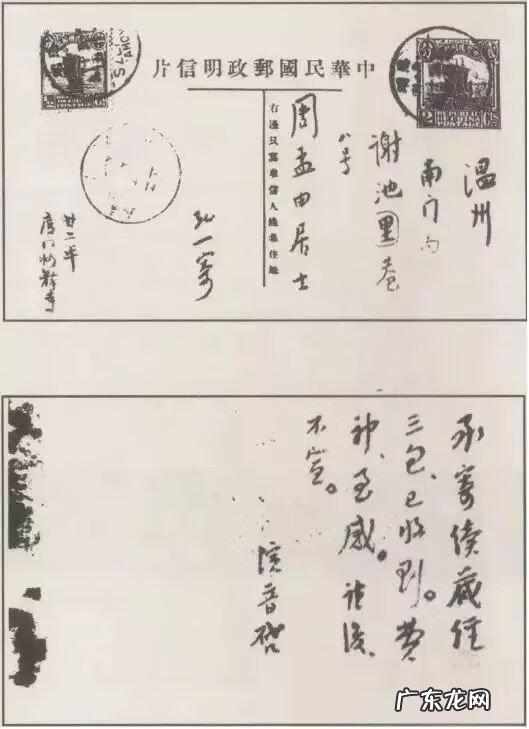 中華民國郵政明信片
溫州
南门内
谢池里巷
八号
周孟由居士
右邊只寫收信人姓名住址
弘一寄
廿二年
厦门妙釋寺
REPUBLIC
OF CHINA
POSTAGE
2
承寄續藏經
三包、已收到。費
神、至感。謹復、
不宣。
演音啓
广东龙网